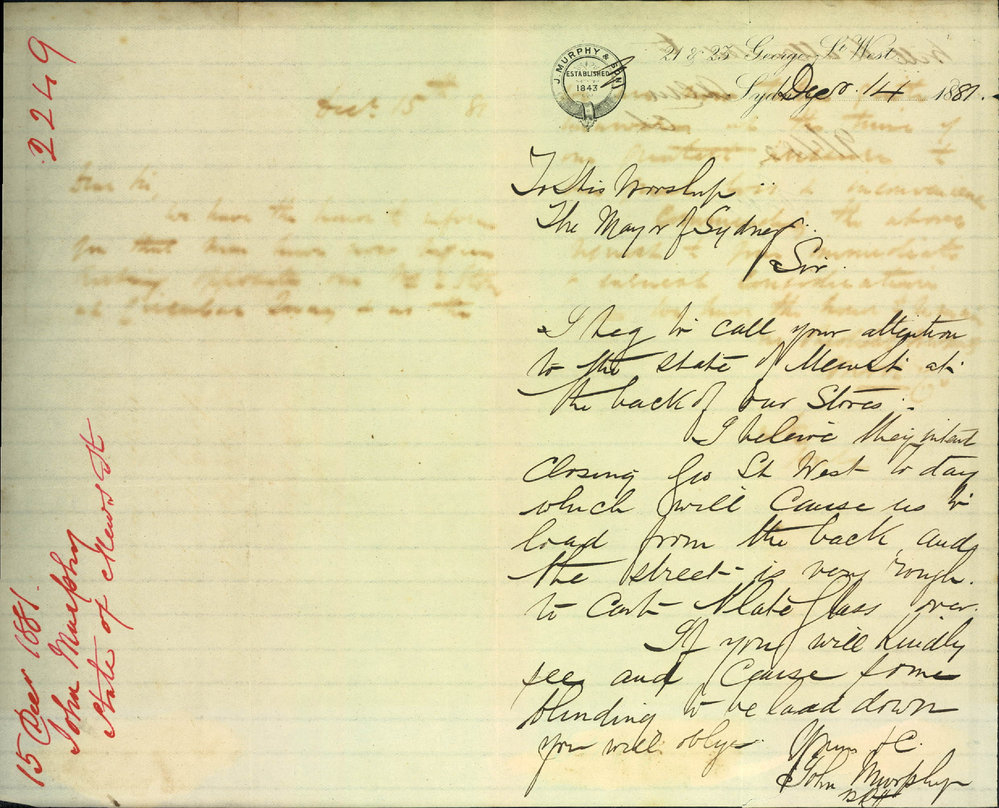 2249
15 Decr 1881.
John Murphy
State of Mews St
Dect. 15th 81
Dear Sir,
We have the honor to inform
you that
opposite our
at Circular Quay & as the
J. MURPHY & SON
ESTABLISHED
1843
21 & 23 George St. West
Sydney Decr. 14 1881.
To His Worship
The Mayor of Sydney
Sir.
I beg to call your attention
to the state of Mews St at
the back of our Stores.
I beleive they intent
closing Geo St West to day
which will Cause us to
load from the back and
the street is very rough.
to Cart Plate Glass over.
If you will Kindly
see and Cause some
blinding to be laad down
you will oblige
Yours &C.
John Murphy